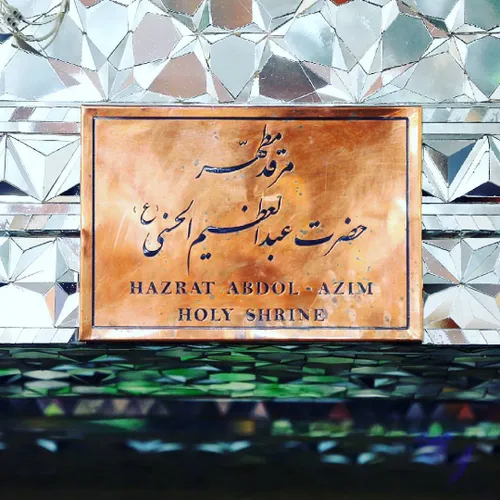 مرقد مطهّر
حضرت عبدالعظیم الحسنی (ع)
HAZRAT ABDOL - AZIM
HOLY SHRINE